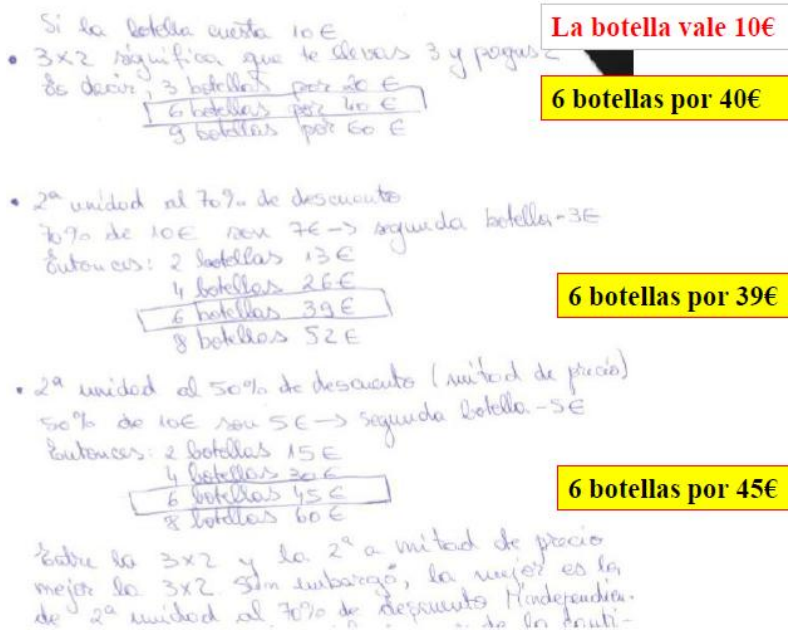 Si la botella cuesta 10€
La botella vale 10€
• 3x2 significa que te llevas 3 y pagas 2
Es decir, 3 botellas por 20 €
6 botellas por 40 €
6 botellas por 40€
9 botellas por 60 €
• 2ª unidad al 70% de descuento
70% de 10€ son 7€ -> segunda botella - 3€
Entonces: 2 botellas 13€
4 botellas 26€
6 botellas 39€
6 botellas por 39€
8 botellas 52€
• 2ª unidad al 50% de descuento (mitad de precio)
50% de 10€ son 5€ -> segunda botella - 5€
Entonces: 2 botellas 15€
4 botellas 30€
6 botellas 45€
6 botellas por 45€
8 botellas 60€
Entre la 3x2 y la 2ª a mitad de precio
mejor la 3x2. Sin embargo, la mejor es la
de 2ª unidad al 70% de descuento
de la